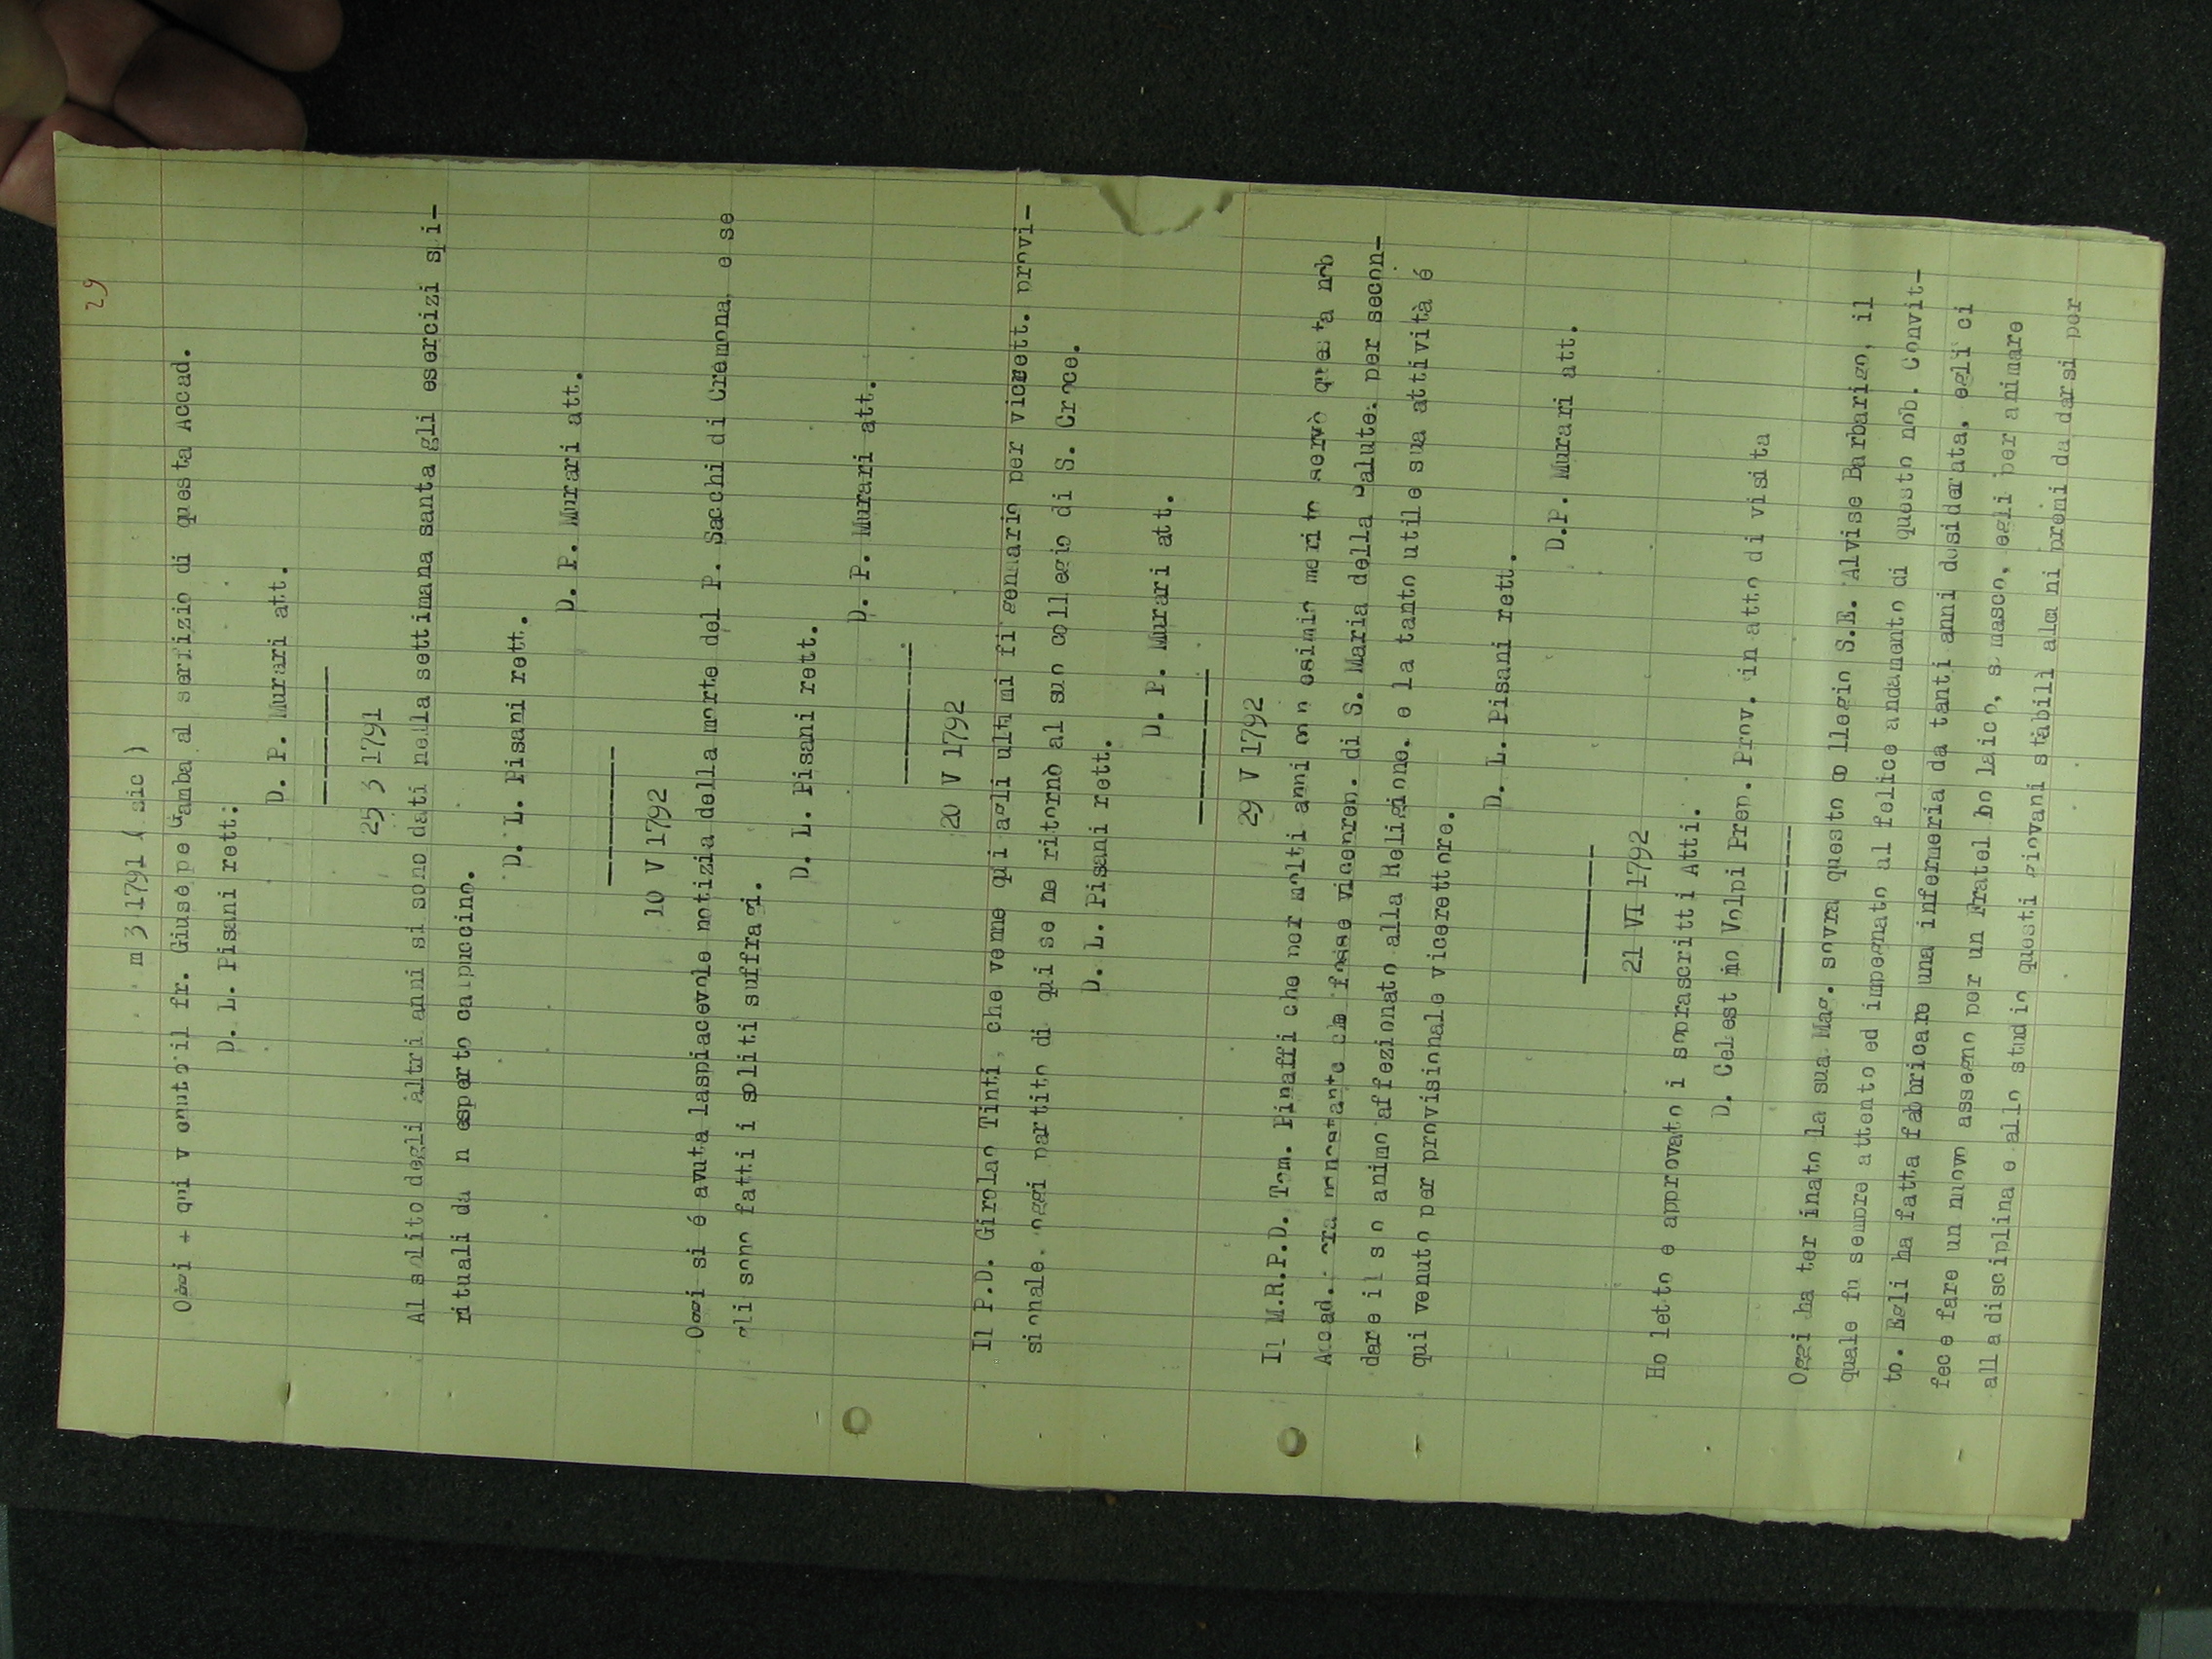 29
m 3 1791 ( sic )
Oggi + qui venuto il fr. Giuseppe Gamba al serfizio di questa Accad.
D. L. Pisani rett.
D. P. Murari att.
25 3 1791
Al solito degli altri anni si sono dati nella settimana santa gli esercizi spi-
rituali da n esperto cappuccino.
D. L. Pisani rett.
D. P. Murari att.
10 V 1792
Oggi si é avuta laspiacevole notizia della morte del P. Sacchi di Cremona, e se
gli sono fatti i soliti suffragi.
D. L. Pisani rett.
D. P. Murari att.
20 V 1792
Il P.D. Girolao Tinti, che venne qui agli ultimi fi gennario per vicrett. provi-
sionale, oggi partito di qui se ne ritornò al suo collegio di S. Croce.
D. L. Pisani rett.
D. P. Murari att.
29 V 1792
Il M.R.P.D. Tom. Pinaffi che per molti anni con esimio merito servò questa nob
Accad., ora nonostante che fosse vicepren. di S. Maria della Salute, per secon-
dare il so animo affezionato alla Religione, e la tanto utile sua attività é
qui venuto per provisionale vicerettore.
D. L. Pisani rett.
D.P. Murari att.
21 VI 1792
Ho letto e approvato i soprascritti Atti.
D. Celestino Volpi Prep. Prov. in atto di visita
Oggi ha terinato la sua Mag. sovra questo collegio S.E. Alvise Barbarigo, il
quale fu sempre attento ed impegnato al felice andamento di questo nob. Convit-
to. Egli ha fatta fabbricare una infermeria da tanti anni desiderata, egli ci
fece fare un nuovo assegno per un Fratello laico, s masco, egli per animare
alla disciplina e allo studio questi giovani stabilì alcuni premi da darsi per